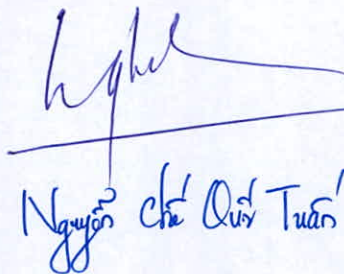 Nguyễn Chí Quý Tuấn